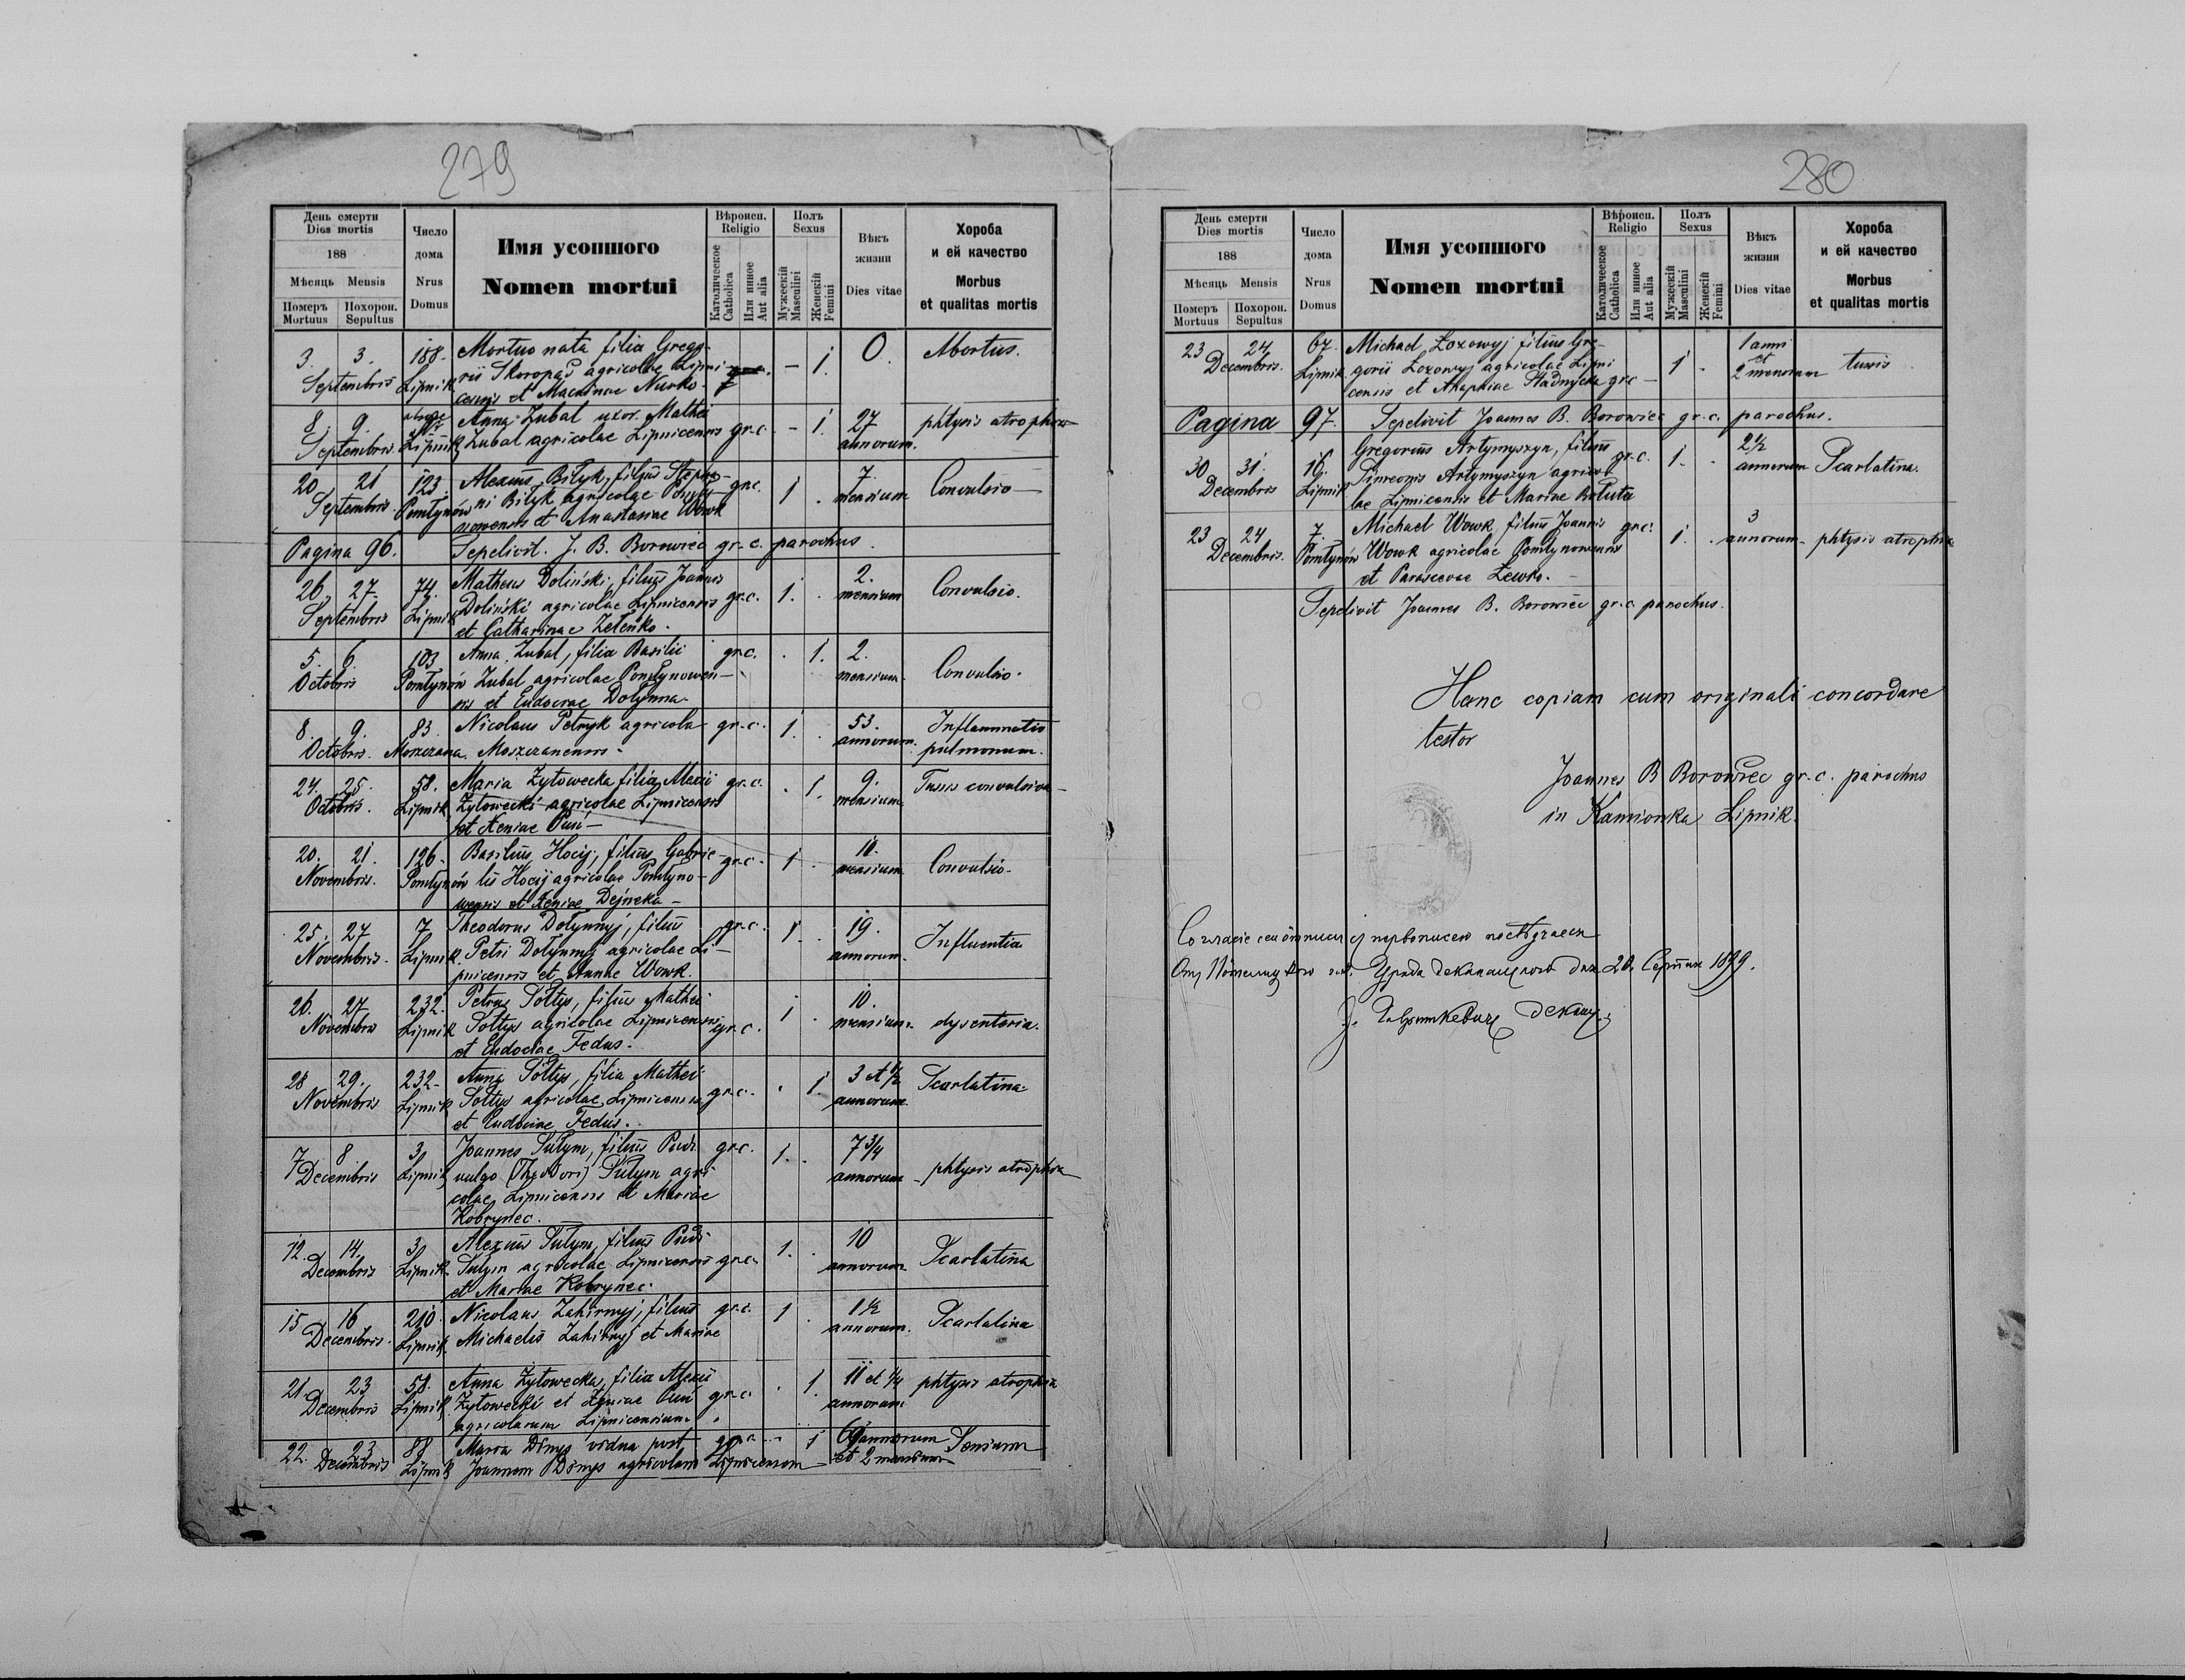 279
День смерти
Dies mortis
188
Мѣсяць Mensis
Померъ Mortuus
Похорон. Sepultus
Число дома
Nrus Domus
Имя усопшого
Nomen mortui
Вѣроисп.
Religio
Католическое Catholica
Или инное Aut alia
Полъ
Sexus
Мужескій Masculini
Женскій Femini
Вѣкъ жизни
Dies vitae
Хороба
и ей качество
Morbus
et qualitas mortis
3. 3. 188. Mortuo nata filia Grego- – 1. 0. Abortus.
Septembris Lipnik rii Skoropad agricolae Lipni-
censis et Macrinae Nurko.
8. 9. Anna Zubal uxor Mathei gr.c. – 1. 27 phtysis atrophica
Septembris. Lipnik Zubal agricolae Lipnicensis annorum.
20 21 123 Alexius Bilyk, filius Stepha- gr.c. 1 . 7. Convulsio
Septembris Pomłynów ni Bilyk agricolae Pomły- mensium
nowensis et Anastasiae Wowk
Pagina 96. Sepelivit. J. B. Borowiec gr. c. parochus.
26 27. 74. Matheus Doliński, filius Joannis gr.c. 1. . 2. Convulsio.
Septembris Lipnik Doliński agricolae Lipnicensis mensium
et Catharinae Zełenko.
5. 6. 103 Anna Zubal, filia Basilii gr.c. . 1. 2. Convulsio.
Octobris Pomłynów Zubal agricolae Pomłynowen- mensium.
sis et Eudociae Dołynna
8. 9. 83. Nicolaus Petryk agricola gr.c. 1. . 53. Inflammatio
Octobris. Moszczana Moszczanensis annorum. pulmonum.
24. 25. 58. Maria Żytowecka filia Alexii gr.c. . 1. 9. Tussis convulsiva
Octobris. Lipnik Żytowecki agricolae Lipnicensis mensium
et Xeniae Pusi
20. 21. 126. Basilius Hocij, filius Gabrie- gr.c. 1 . 11. Convulsio
Novembris. Pomłynów lis Hocij agricolae Pomłyno- mensium
wensis et Xeniae Dejneka
25. 27 7 Theodorus Dołynnyj, filius gr.c. 1 . 19. Influentia
Novembris. Lipnik. Petri Dołynnyj agricolae Li- annorum.
pnicensis et Annae Wowk.
26. 27 232. Petrus Sołtys, filius Mathei gr.c. 1 . 10. dysenteria.
Novembris Lipnik Sołtys agricolae Lipnicensis mensium.
et Eudociae Fedus.
28 29. 232 Anna Sołtys, filia Mathei gr.c. . 1. 3 et ½ Scarlatina
Novembris Lipnik Sołtys agricolae Lipnicensis annorum.
et Eudociae Fedus.
7 8. 3 Joannes Sułym, filius gr.c. 1. . 7 ¾ phtysis atrophica
Decembris Lipnik vulgo (Theodori) Sułym agri- annorum
colae Lipnicensis et Mariae
Kobrynec.
12. 14. 3 Alexius Sułym, filius gr.c. 1. . 10 Scarlatina
Decembris Lipnik Sułym agricolae Lipnicensis annorum
et Mariae Kobrynec.
15 16 210 Nicolaus Zahirnyj, filius gr.c. 1 . 1 ½ Scarlatina
Decembris. Lipnik Michaelis Zahirnyj et Mariae annorum.
21. 23 58. Anna Żytowecka, filia Alexii gr.c. . 1. 11 et ¼ phtysis atrophica
Decembris Lipnik Żytowecki et Xeniae Pusi annorum
agricolarum Lipnicensium
22. 23 88 Maria Dmys vidua post gr.c. 1 69 annorum Senium
Decembris Lipnik Joannem Dmys agricolam Lipnicensem et 2 mensium
280
День смерти
Dies mortis
188
Мѣсяць Mensis
Померъ Mortuus
Похорон. Sepultus
Число дома
Nrus Domus
Имя усопшого
Nomen mortui
Вѣроисп.
Religio
Католическое Catholica
Или инное Aut alia
Полъ
Sexus
Мужескій Masculini
Женскій Femini
Вѣкъ жизни
Dies vitae
Хороба
и ей качество
Morbus
et qualitas mortis
23 24 67. Michael Łozowyj filius Gre- 1 . 1 anni
Decembris. Lipnik gorii Łozowyj agricolae Lipni et tussis
censis et Agaphiae Stadnycka gr.c. 2 mensium
Pagina 97. Sepelivit Joannes B. Borowiec gr. c. parochus.
30 31. 16. Gregorius Artymyszyn, filius gr.c. 1. . 2 ½ Scarlatina.
Decembris Lipnik Simeonis Artymyszyn agrico- annorum
lae Lipnicensis et Mariae Bałuta
23 24 7. Michael Wowk, filius Joannis gr.c. 1. . 3 phtysis atrophica
Decembris. Pomłynów Wowk agricolae Pomłynowensis annorum
et Parascevae Lewko.
Sepelivit Joannes B. Borowiec gr.c. parochus.
Hanc copiam cum originali concordare
testor
Joannes B Borowiec gr. c. parochus
in Kamionka Lipnik.
Согласіе сеи отписи съ первописею посвѣдчаеся
Уряда деканального дня 20 Серпня 1899.
декан